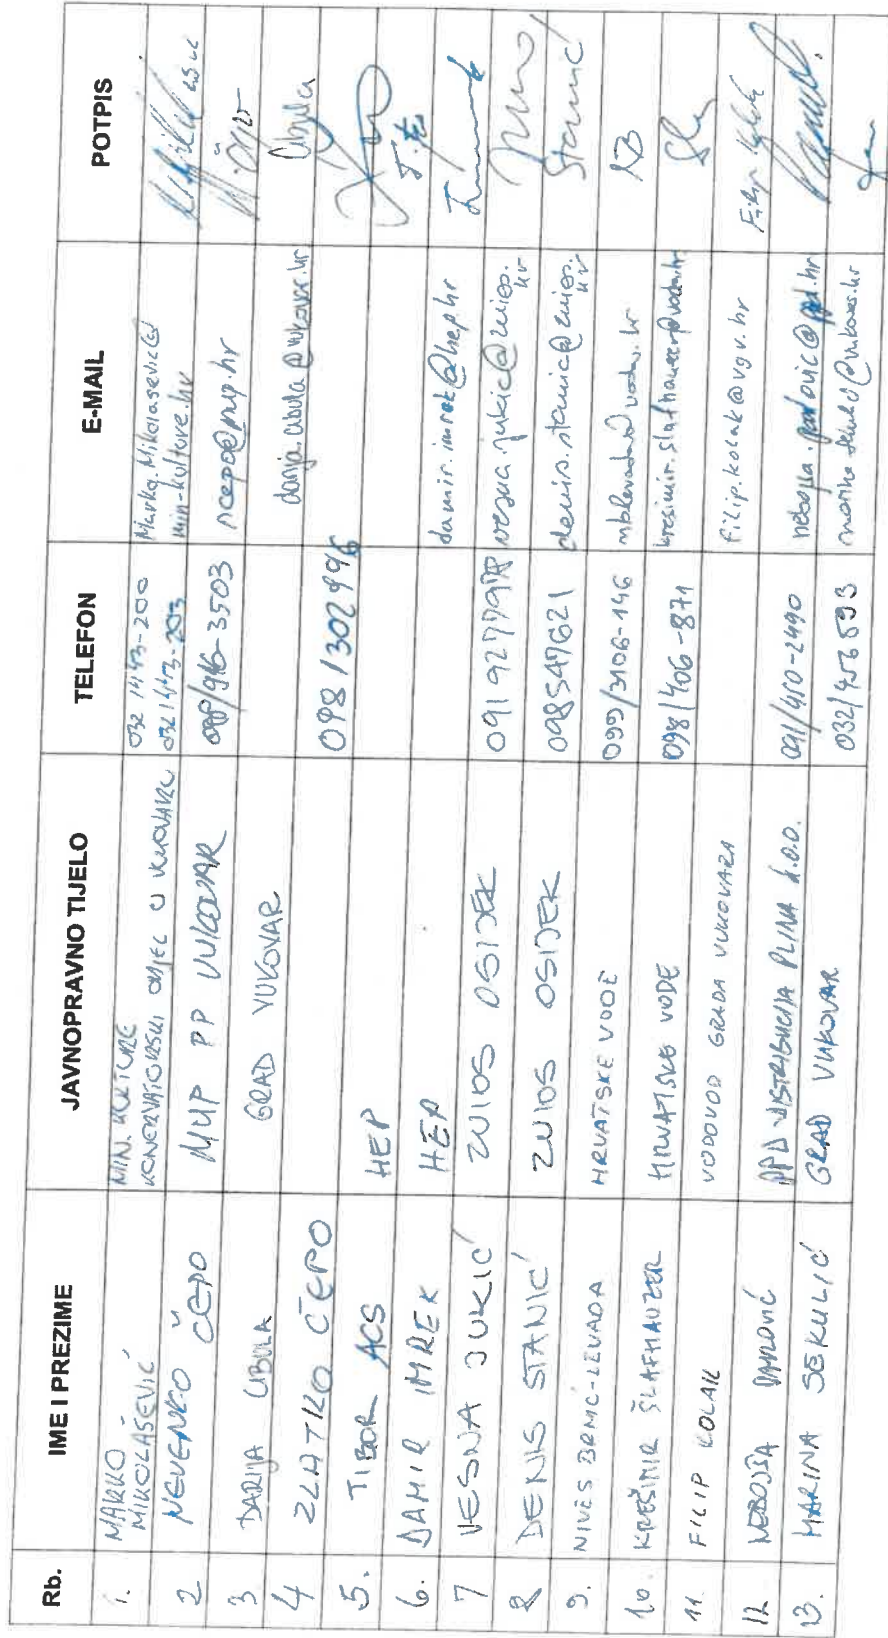 Rb. IME I PREZIME JAVNOPRAVNO TIJELO TELEFON E-MAIL POTPIS
1. MARKO MIN. KULTURE 032/443-200 Marko.Mikolasevic@
MIKOLAŠEVIĆ KONZERVATORSKI ODJEL U VUKOVARU min-kulture.hr
2 NEVENKO ČEPO MUP PP VUKOVAR ncepo@mup.hr
3 DARIJA CIBULA GRAD VUKOVAR darija.cibula@vukovar.hr Cibula
4 ZLATKO ČEPO 098/1302996
5. TIBOR ACS HEP
6. DAMIR IMREK HEP damir.imrek@hep.hr
7 VESNA JUKIĆ ZUIOS OSIJEK vesna.jukic@zuios.hr
8 DENIS STANIĆ ZUIOS OSIJEK 098547621 denis.stanic@zuios.hr Stanić
9. NIVES BRNIĆ-LEVADA HRVATSKE VODE 099/3106-146
10. KREŠIMIR ŠLAFHAUZER HRVATSKE VODE 098/406-871 kresimir.slafhauzer@voda.hr
11. FILIP KOLAK VODOVOD GRADA VUKOVARA filip.kolak@vgv.hr Filip Kolak
12 NEBOJŠA PAVLOVIĆ PPD DISTRIBUCIJA PLINA d.o.o. 091/450-2490 nebojsa.pavlovic@ppd.hr
13. MARINA SEKULIĆ GRAD VUKOVAR 032/456593 marina.sekulic@vukovar.hr